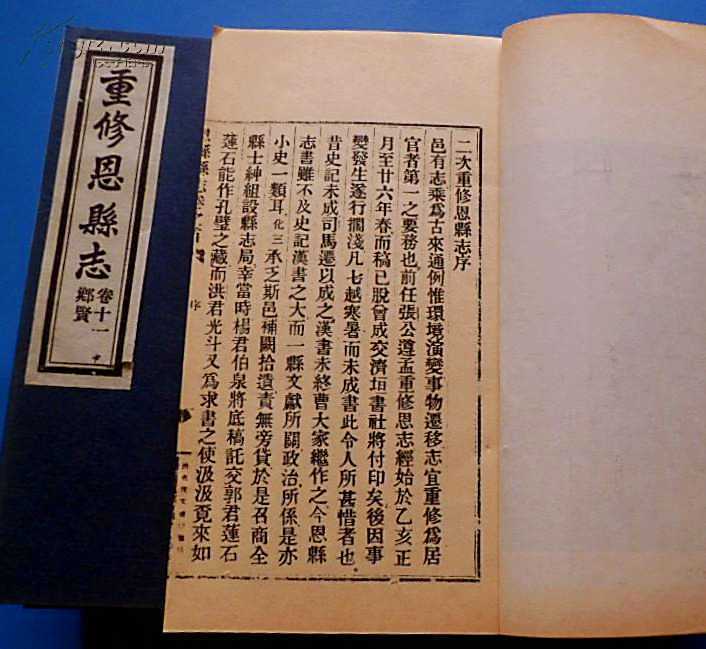 重修恩縣志
卷十一
鄉賢
二次重修恩縣志序
邑有志乘爲古來通例惟環境演變事物遷移志宜重修爲居
官者第一之要務也前任張公遵孟重修恩志經始於乙亥正
月至廿六年春而稿已脫曾成交濟垣書社將付印矣後因事
變發生遂行擱淺凡七越寒暑而未成書此令人所甚惜者也
昔史記未成司馬遷以成之漢書未終曹大家繼作之今恩縣
志書雖不及史記漢書之大而一縣文獻所關政治所係是亦
小史一類耳化三承乏斯邑補闕拾遺責無旁貸於是召商全
縣士紳組設縣志局幸當時楊君伯泉將底稿託交郭君蓮石
蓮石能作孔璧之藏而洪君光斗又爲求書之使汲汲覓來如
序